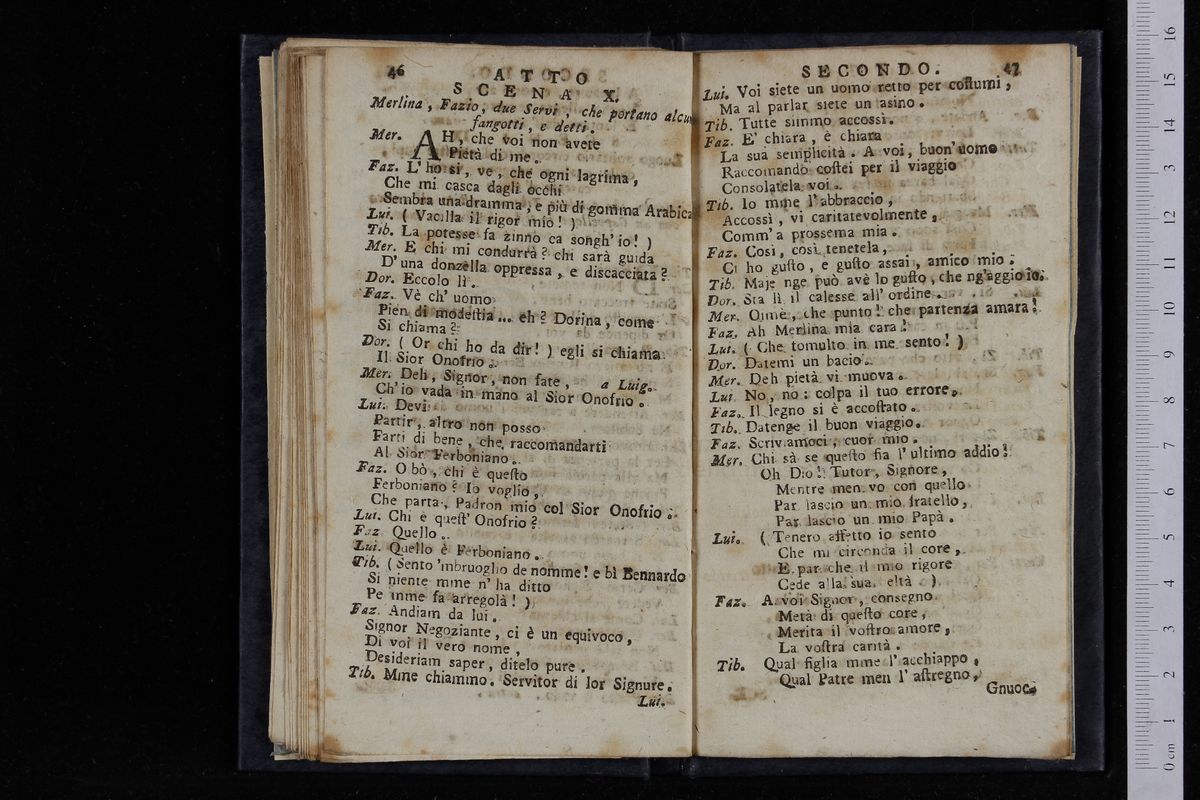 46
ATTO
SCENA X.
Merlina, Fazio, due Servi, che portano alcu
fangotti, e detti.
Mer. AH, che voi non avete
Pietà di me.
Faz. L'ho sì, ve, che ogni lagrima,
Che mi casca dagli occhi
Sembra una dramma, e più di gomma Arabica
Lui. ( Vacilla il rigor mio! )
Tib. La potesse fa zinno ca songh'io! )
Mer. E chi mi condurrà? chi sarà guida
D'una donzella oppressa, e discacciata?
Dor. Eccolo lì.
Faz. Vè ch'uomo
Pien di modeſtia... eh? Dorina, come
Si chiama?
Dor. ( Or chi ho da dir! ) egli si chiama
Il Sior Onofrio.
Mer. Deh, Signor, non fate, a Luig.
Ch'io vada in mano al Sior Onofrio.
Lui. Devi
Partir, altro non posso
Farti di bene, che raccomandarti
Al Sior Ferboniano.
Faz. O bò, chi è queſto
Ferboniano? Io voglio,
Che parta, Padron mio col Sior Onofrio.
Lui. Chi è queſt'Onofrio?
Faz. Quello.
Lui. Quello è Ferboniano.
Tib. ( Sento 'mbruoglio de nomme! e bì Bennardo
Si niente mme n'ha ditto
Pe mme fa arregolà! )
Faz. Andiam da lui.
Signor Negoziante, ci è un equivoco,
Di voi il vero nome,
Desideriam saper, ditelo pure.
Tib. Mme chiammo. Servitor di lor Signure.
Lui.
SECONDO. 47
Lui. Voi siete un uomo retto per coſtumi,
Ma al parlar siete un asino.
Tib. Tutte simmo accossì.
Faz. E' chiara, è chiara
La sua semplicità. A voi, buon'uomo
Raccomando coſtei per il viaggio
Consolatela voi.
Tib. Io mme l'abbraccio,
Accossì, vi caritatevolmente,
Comm'a prossema mia.
Faz. Così, così tenetela,
Ci ho guſto, e guſto assai, amico mio.
Tib. Maje nge può avè lo guſto, che ng'aggio io.
Dor. Sta lì il calesse all'ordine.
Mer. Oimè, che punto! che partenza amara!
Faz. Ah Merlina mia cara!
Lui. ( Che tomulto in me sento! )
Dor. Datemi un bacio.
Mer. Deh pietà vi muova.
Lui. No, no: colpa il tuo errore.
Faz. Il legno si è accoſtato.
Tib. Datenge il buon viaggio.
Faz. Scriviamoci, cuor mio.
Mer. Chi sà se queſto fia l'ultimo addio!
Oh Dio! Tutor, Signore,
Mentre men vo con quello
Par lascio un mio fratello,
Par lascio un mio Papà.
Lui. ( Tenero affetto io sento
Che mi circonda il core,
E par che il mio rigore
Cede alla sua eltà )
Faz. A voi Signor, consegno
Metà di queſto core,
Merita il voſtro amore,
La voſtra carità.
Tib. Qual figlia mme l'acchiappo,
Qual Patre men l'aſtregno,
Gnuoc-